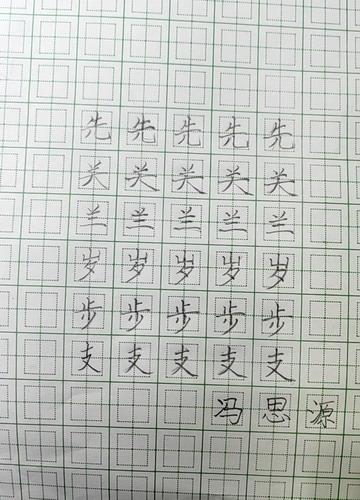 先先先先先
关关关关关
兰兰兰兰兰
岁岁岁岁岁
步步步步步
支支支支支
冯思源